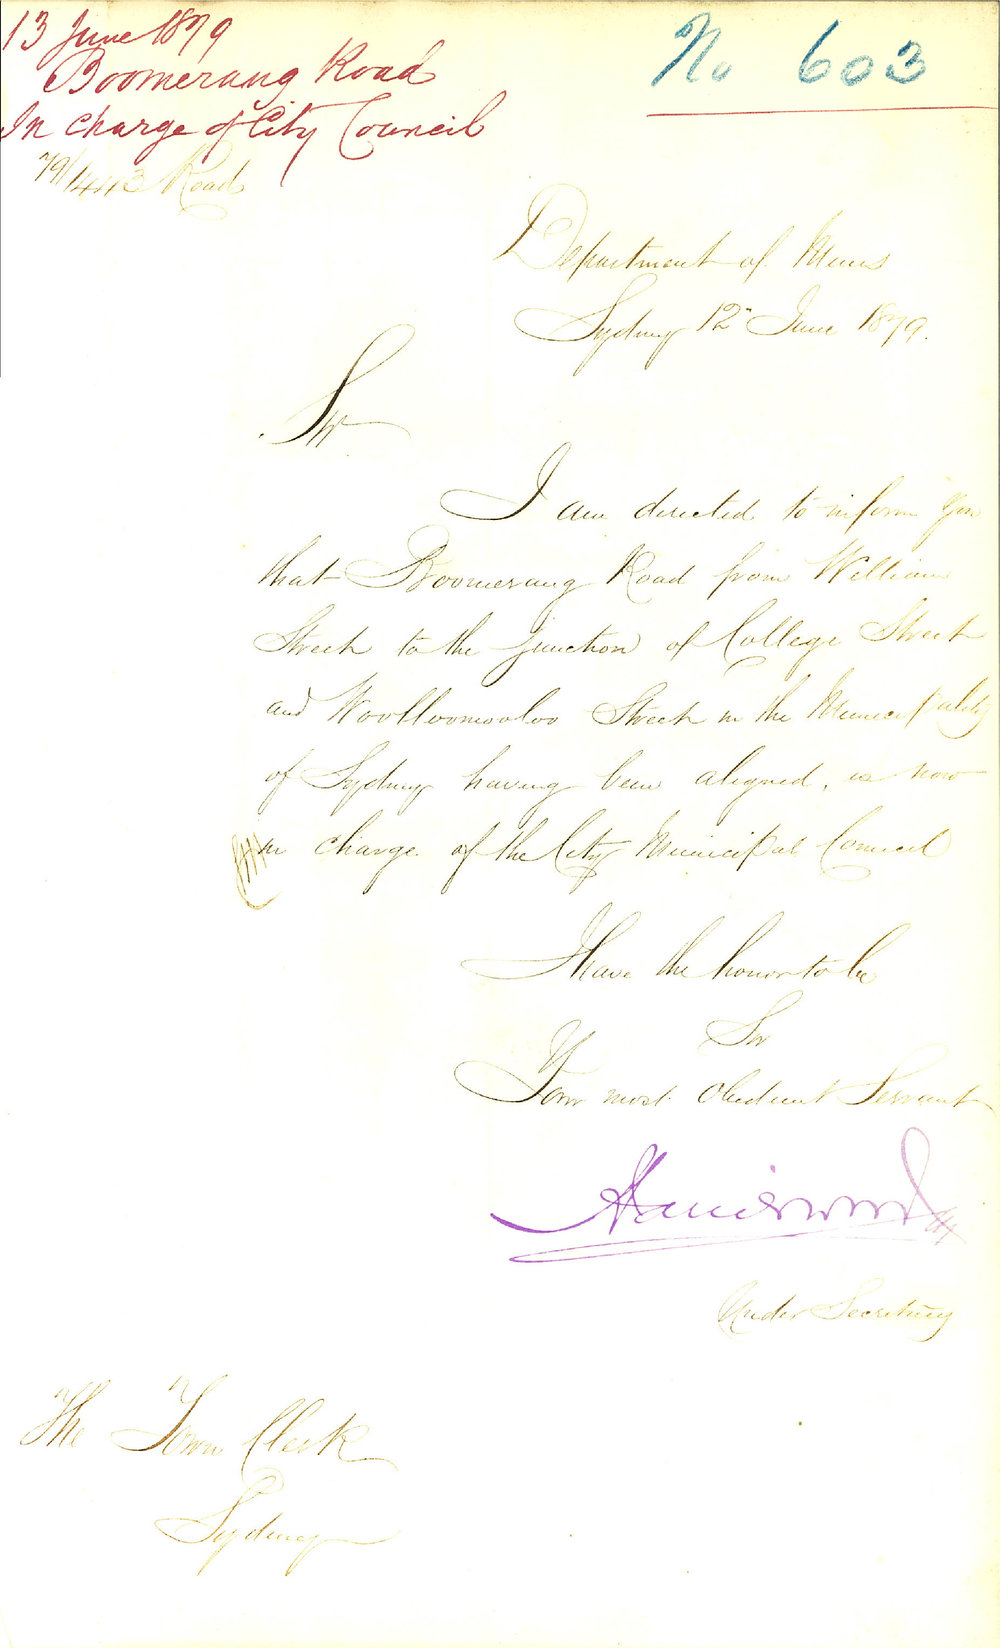 13 June 1879
Boomerang Road
In charge of City Council
79/1443 Road
No 603
Department of Mines
Sydney 12" June 1879.
Sir
I am directed to inform you
that Boomerang Road from William
Street to the junction of College Street
and Woolloomooloo Street in the Municipality
of Sydney having been aligned, is now
in charge of the City Municipal Council
I have the honor to be
Sir
Your most obedient Servant
Under Secretary
The Town Clerk
Sydney